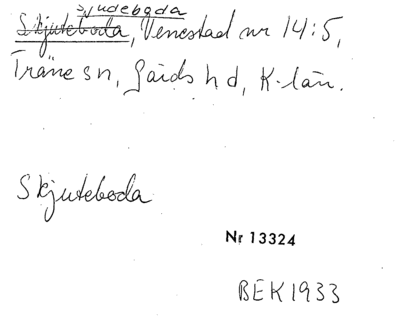 Sjudeboda
Skjuteboda, Venestad nr 14:5,
Träne sn, Gärds hd, K-län.
Skjuteboda
Nr 13324
BEK 1933